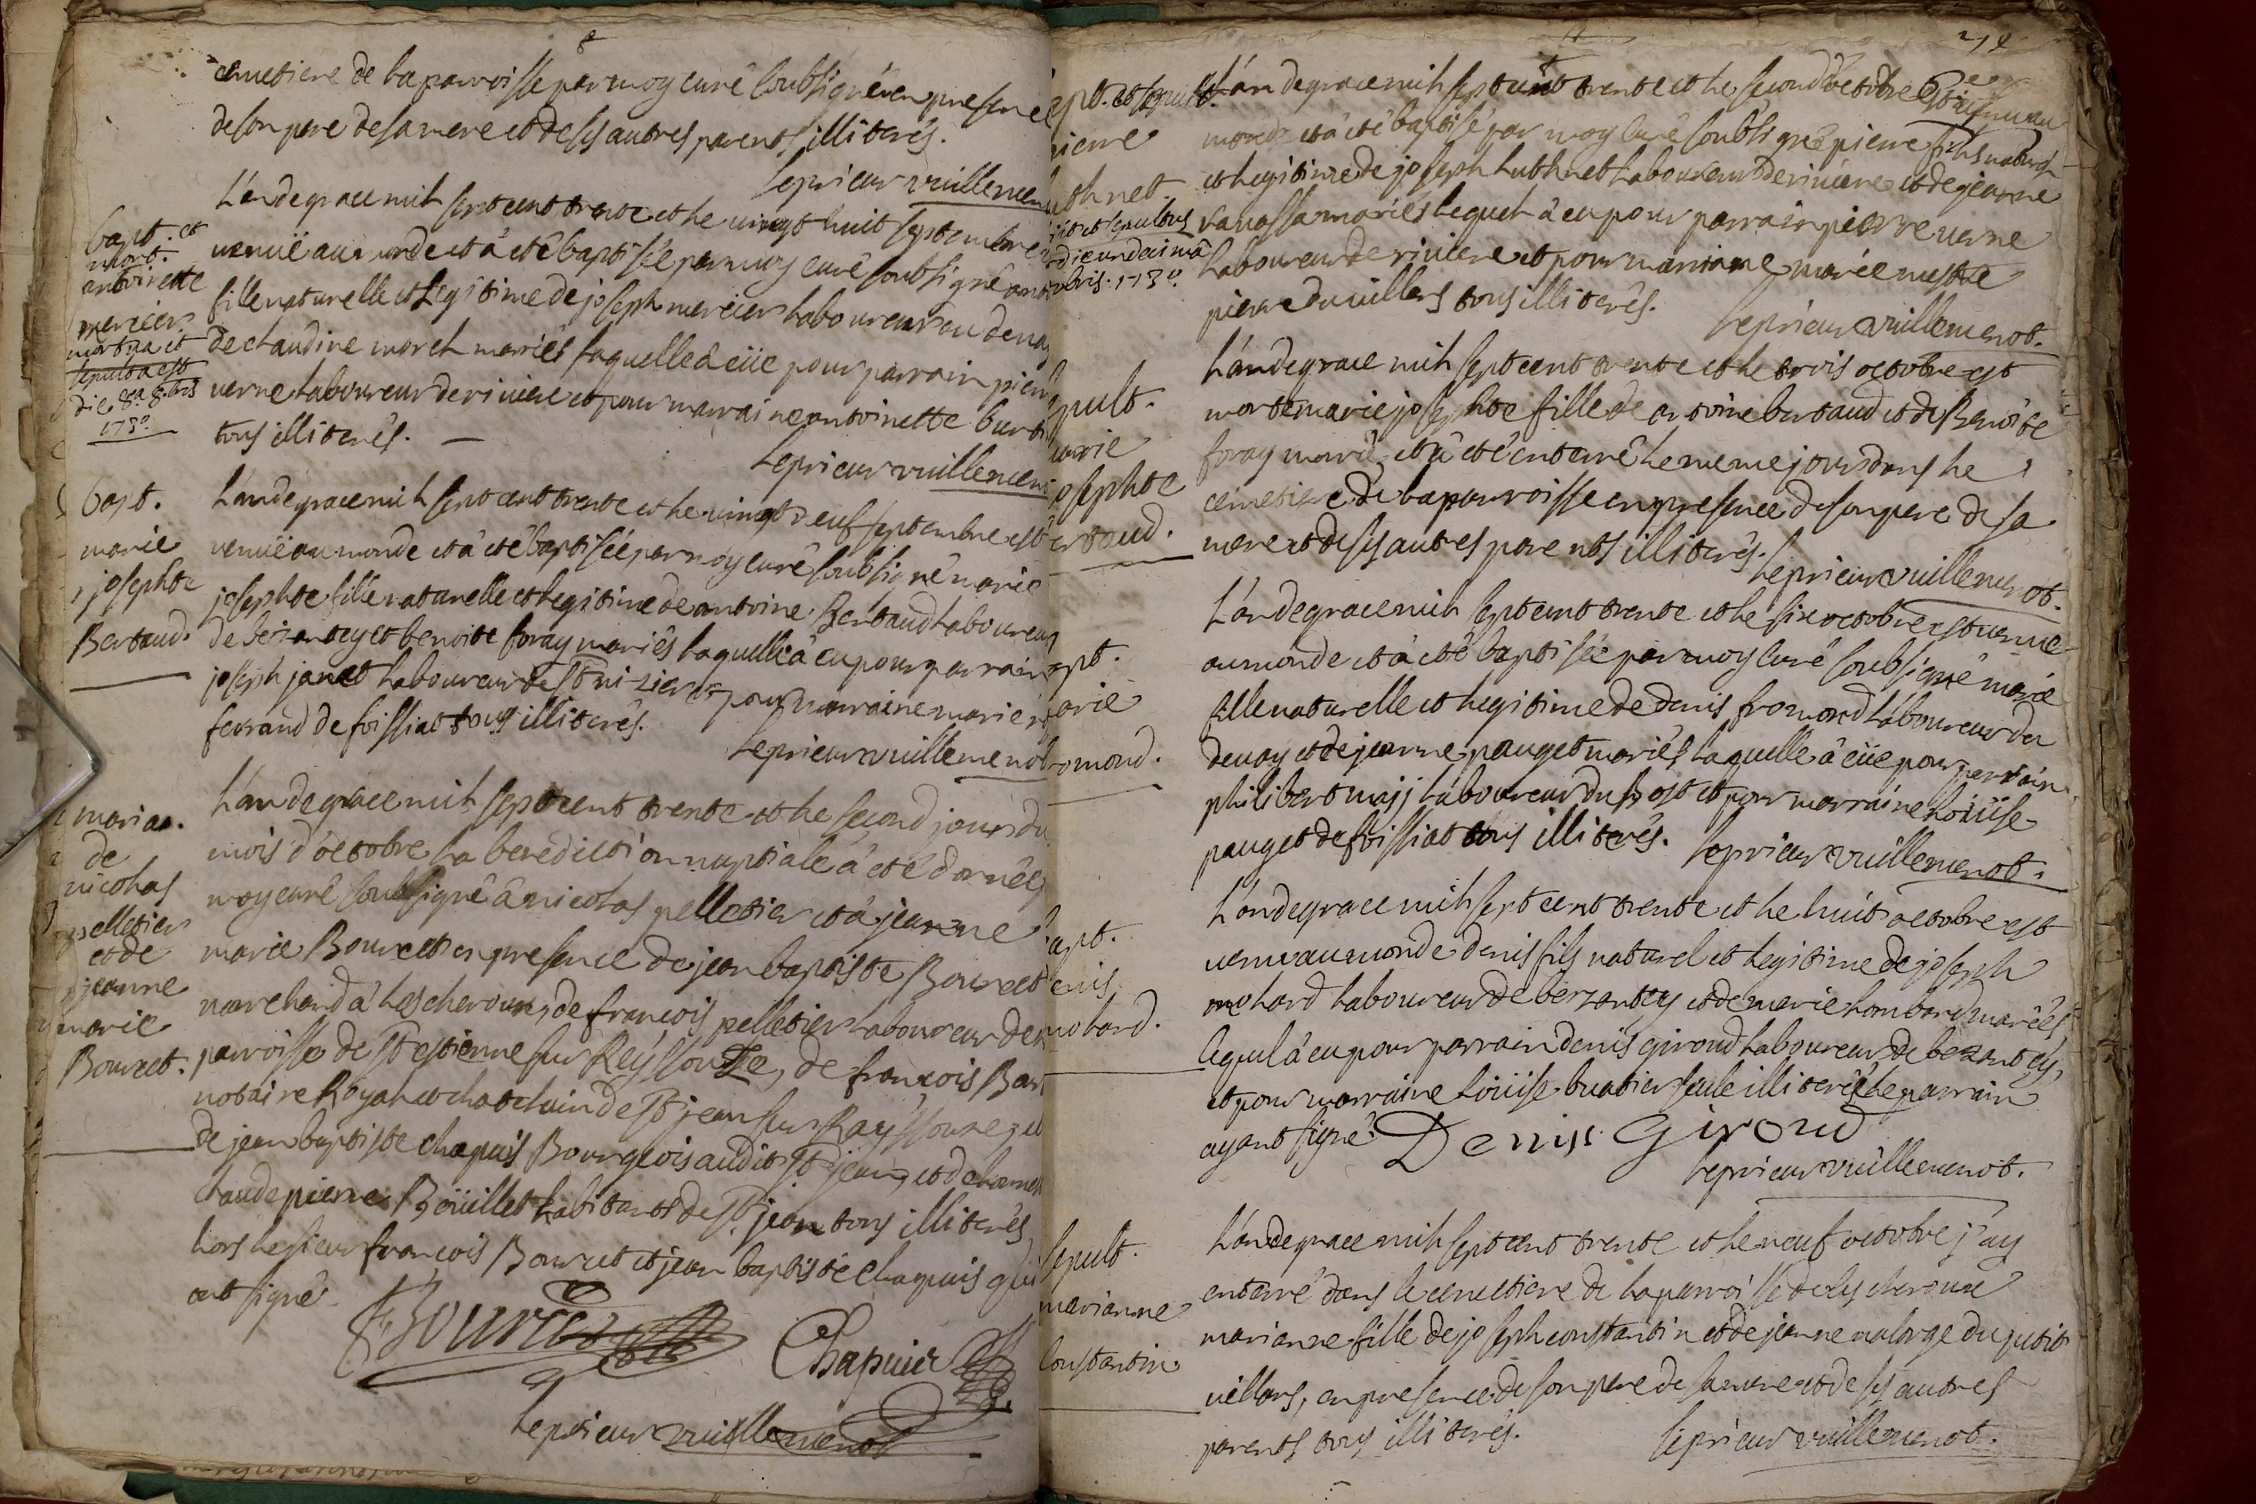 cemetiere de la parroisse par moy curé soubsigné en presence
de son pere de sa mere et de ses autres parents illiterés.
le prieur vuillemen
bapt. et
mort.
antoinette
mercier
mortua et
sepulta est
die 8.a 8bris
1730
L'an de grace mil sept cent trente et le vingt huit septembre
venuë au monde et à eté baptisée par moy curé soubsigné
fille naturelle et legitime de joseph mercier laboureur du devay
de claudine morel mariés laquelle à eüe pour parrain pierre
verne laboureur de riviere et pour marraine antoinette
tous illiterés.
le prieur vuillemen
bapt.
marie
josephte
Bertaud.
L'an de grace mil sept cent trente et le vingt neuf septembre est
venuë au monde et à eté baptisée par moy curé soubsigné marie
josephte fille naturelle et legitime de antoine Bertaud laboureur
de besantey et benoite foray mariés laquelle à eu pour parrain
joseph janet laboureur de St nizier et pour marraine marie
ferrand de foissiat tous illiterés.
le prieur vuillemenot
mariag.
de
nicolas
pelletier
et de
jeanne
marie
Bourcet.
L'an de grace mil sept cent trente et le second jour du
mois d'octobre la benediction nuptiale à eté donnée
moy curé soubsigné à nicolas pelletier et à jeanne
marie Bourcet en presence de jean baptiste Bourcet
marchand à lescheroux, de françois pelletier laboureur de
parroisse de St estienne sur Reyssouze, de françois
notaire Royal et chatelain de St jean sur Rayssouze
de jean baptiste chapuis Bourgeois audit St jean, et de
claude pierre Boüillet habitants de St jean tous illiterés
hors le sieur françois Bourcet et jean baptiste chapuis qui
ont signé
Bourcet
Chapuis
le prieur vuillemenot
bapt. et sepult.
pierre
luthnet
L'an de grace mil sept cent trente et le second octobre est venu au
monde et à eté baptisé par moy curé soubsigné pierre fils naturel
et legitime de joseph luthnet laboureur de riviere et de jeanne
vavassa mariés lequel à eu pour parrain pierre verne
laboureur de riviere et pour marraine marie
pierre du villars tous illiterés.
le prieur vuillemenot.
sepult.
marie
josephte
bertaud.
L'an de grace mil sept cent trente et le trois octobre est
morte marie josephte fille de antoine bertaud et de Benoite
foray mariés, et à eté enterré le meme jour dans le
cemetiere de la parroisse en presence de son pere de sa
mere et de ses autres parents illiterés.
le prieur vuillemenot.
bapt.
marie
fromond.
L'an de grace mil sept cent trente et le six octobre est venue
au monde et à eté baptisée par moy curé soubsigné marie
fille naturelle et legitime de denis fromond laboureur du
devay et de jeanne pauget mariés laquelle à eüe pour parrain
philibert majj laboureur du Bost et pour marraine loüise
pauget de foissiat tous illiterés.
le prieur vuillemenot.
bapt.
denis
mohard.
L'an de grace mil sept cent trente et le huit octobre est
venu au monde denis fils naturel et legitime de joseph
mohard laboureur de bersantey et de marie lombard mariés
lequel à eu pour parrain denis giroud laboureur de besantey,
et pour marraine loüise buatier seule illiterée le parrain
ayant signé.
Denis Giroud
le prieur vuillemenot.
sepult.
marianne
constantin
L'an de grace mil sept cent trente et le neuf octobre j'ay
enterré dans le cemetiere de la parroisse de lescheroux
marianne fille de joseph constantin et de jeanne malorge du petit
villars, en presence de son pere de sa mere et de ses autres
parents tous illiterés.
le prieur vuillemenot.